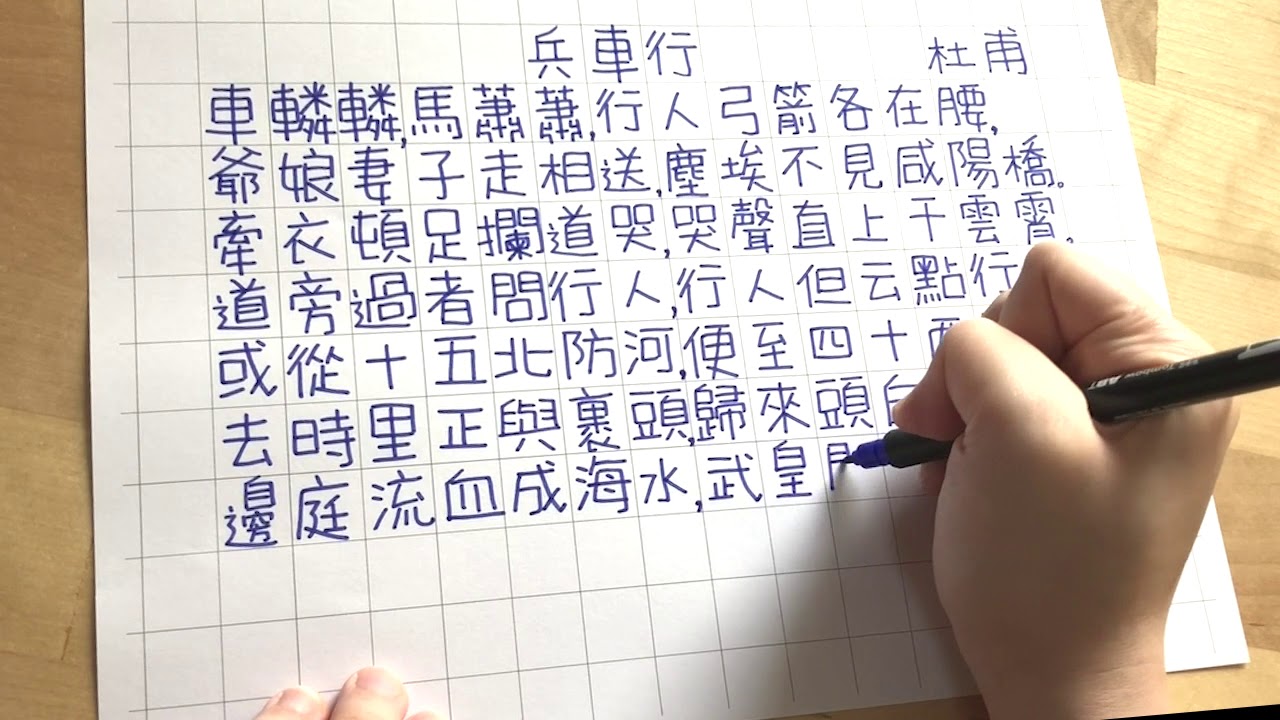 兵車行 杜甫
車轔轔,馬蕭蕭,行人弓箭各在腰,
爺娘妻子走相送,塵埃不見咸陽橋。
牽衣頓足攔道哭,哭聲直上干雲霄,
道旁過者問行人,行人但云點行
或從十五北防河,便至四十西
去時里正與裹頭,歸來頭白
邊庭流血成海水,武皇
Tombow